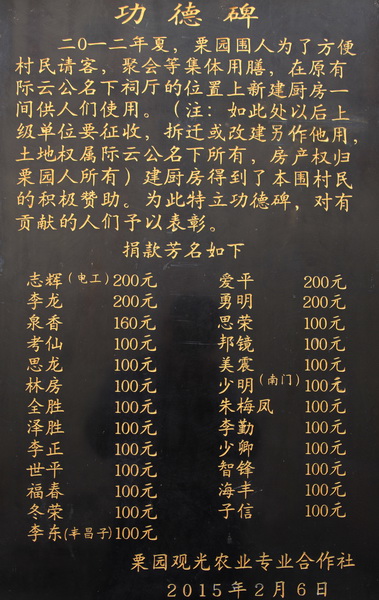 功德碑
二0一二年夏，栗园围人为了方便
村民请客，聚会等集体用膳，在原有
际云公名下祠厅的位置上新建厨房一
间供人们使用。（注：如此处以后上
级单位要征收，拆迁或改建另作他用，
土地权属际云公名下所有，房产权归
栗园人所有）建厨房得到了本围村民
的积极赞助。为此特立功德碑，对有
贡献的人们予以表彰。
捐款芳名如下
志辉(电工)200元 爱平 200元
李龙 200元 勇明 200元
泉香 160元 思荣 100元
考仙 100元 邦镜 100元
思龙 100元 美震 100元
林房 100元 少明(南门)100元
全胜 100元 朱梅凤 100元
泽胜 100元 李勤 100元
李正 100元 少卿 100元
世平 100元 智锋 100元
福春 100元 海丰 100元
冬荣 100元 子信 100元
李东(丰昌子)100元
栗园观光农业专业合作社
2015年2月6日